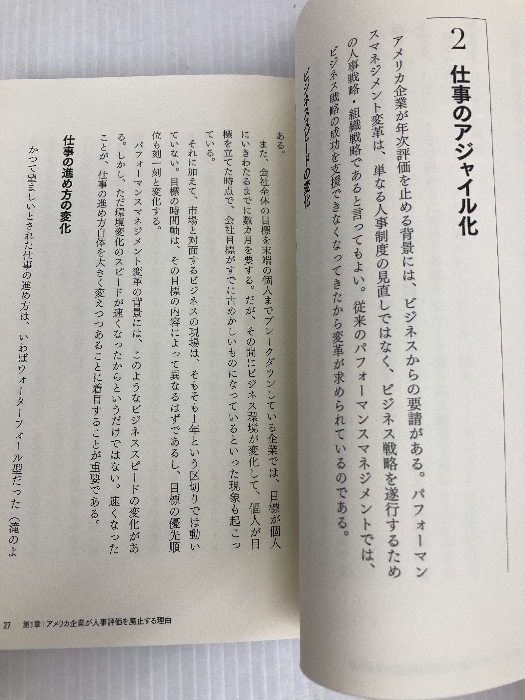 2 仕事のアジャイル化
アメリカ企業が年次評価を止める背景には、ビジネスからの要請がある。パフォーマン
スマネジメント変革は、単なる人事制度の見直しではなく、ビジネス戦略を遂行するため
の人事戦略・組織戦略であると言ってもよい。従来のパフォーマンスマネジメントでは、
ビジネス戦略の成功を支援できなくなってきたから変革が求められているのである。
ビジネススピードの変化
ある。
また、会社全体の目標を末端の個人までブレークダウンしている企業では、目標が個人
にいきわたるまでに数カ月を要する。だが、その間にビジネス環境が変化して、個人が目
標を立てた時点で、会社目標がすでに古めかしいものになっているといった現象も起こっ
ている。
それに加えて、市場と対面するビジネスの現場は、そもそも1年という区切りでは動い
ていない。目標の時間軸は、その目標の内容によって異なるはずであるし、目標の優先順
位も刻一刻と変化する。
パフォーマンスマネジメント変革の背景には、このようなビジネススピードの変化があ
る。しかし、ただ環境変化のスピードが速くなったからというだけではない。速くなった
ことが、仕事の進め方自体を大きく変えつつあることに着目することが重要である。
仕事の進め方の変化
かつて望ましいとされた仕事の進め方は、いわばウォーターフォール型だった（滝のよ
27 第1章｜アメリカ企業が人事評価を廃止する理由